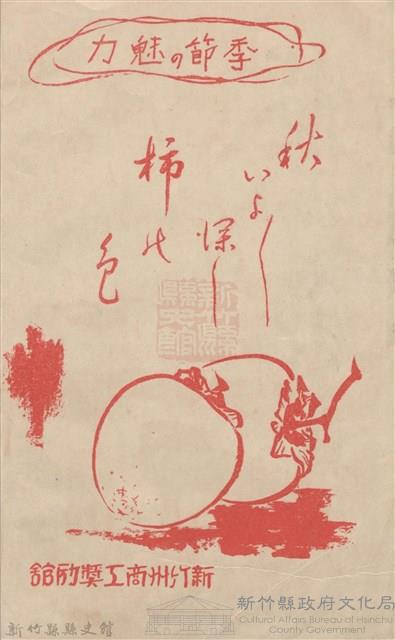 季節の魅力
秋
いよ〱
深し
柿の
色
新竹縣
縣史館
新竹州商工奬励舘
新竹縣縣史館
新竹縣政府文化局
Cultural Affairs Bureau of Hsinchu
County Government